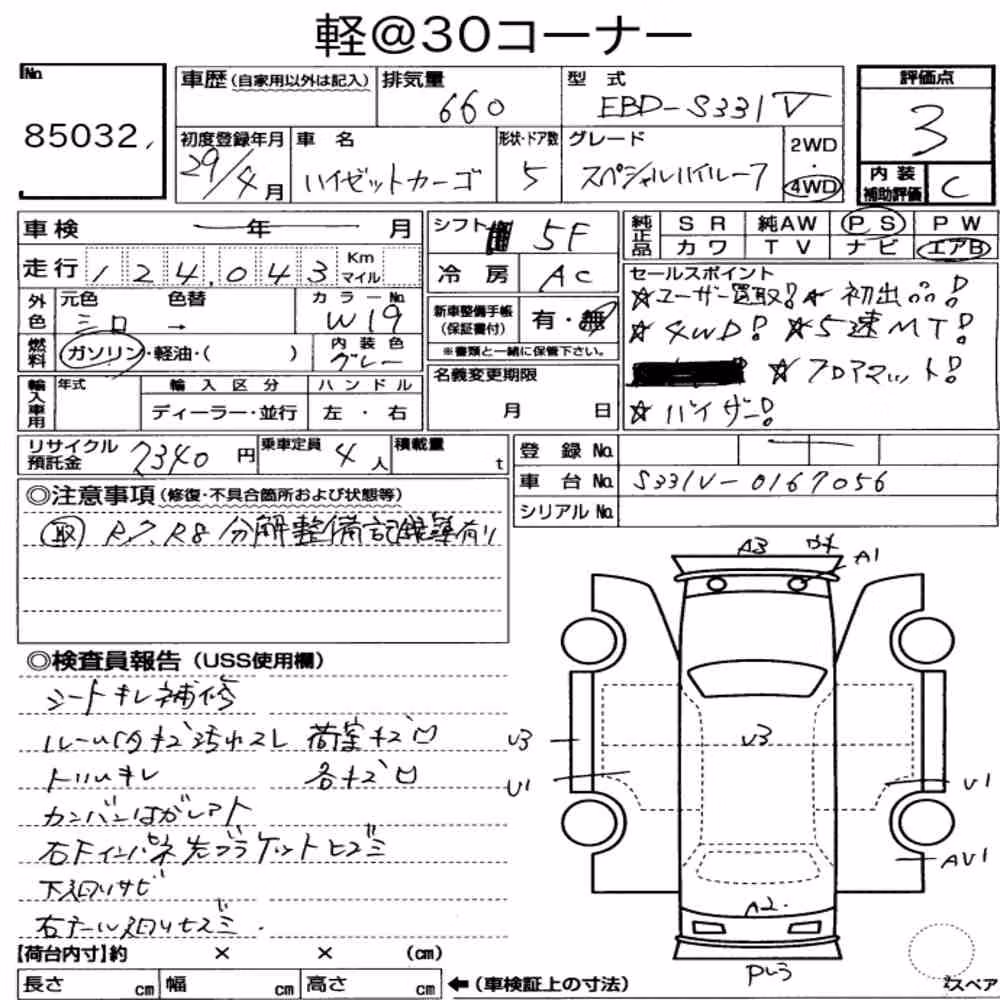 軽@30コーナー
No.
85032
車歴(自家用以外は記入)
排気量
660
型式
EBD-S331V
評価点
3
初度登録年月
29/4月
車名
ハイゼットカーゴ
形状・ドア数
5
グレード
スペシャルハイルーフ
2WD
・
4WD
内装
補助評価
C
車検 ー年 月
シフト
5F
純正品
SR 純AW PS PW
カワ TV ナビ エアB
走行 124,043 Km マイル
冷房
AC
セールスポイント
☆ユーザー買取! ☆初出品!
☆4WD! ☆5速MT!
☆フロアマット!
☆バイザー!
外色
元色
シロ
色替
→
カラーNo.
W19
新車整備手帳
(保証書付)
有・無
※書類と一緒に保管下さい。
燃料
ガソリン・軽油・( )
内装色
グレー
輸入車用
年式
輸入区分
ディーラー・並行
ハンドル
左・右
名義変更期限
月 日
リサイクル
預託金
7340円
乗車定員
4人
積載量
t
登録No.
車台No. S331V-0167056
シリアルNo.
◎注意事項(修復・不具合箇所および状態等)
取 R7.R8 分解整備記録簿有り
◎検査員報告(USS使用欄)
シートキレ補修
ルーム内キズ汚れスレ 荷室キズ凹
トリムキレ 各キズ凹
カンバンはがしアト
右Fインパネ先ブラケットヒズミ
下廻りサビ
右テール廻りヒズミ
A3
A1
U3
U3
U1
U1
AV1
A2
PU3
スペア
【荷台内寸】約 × × (cm)
長さ cm 幅 cm 高さ cm
←(車検証上の寸法)